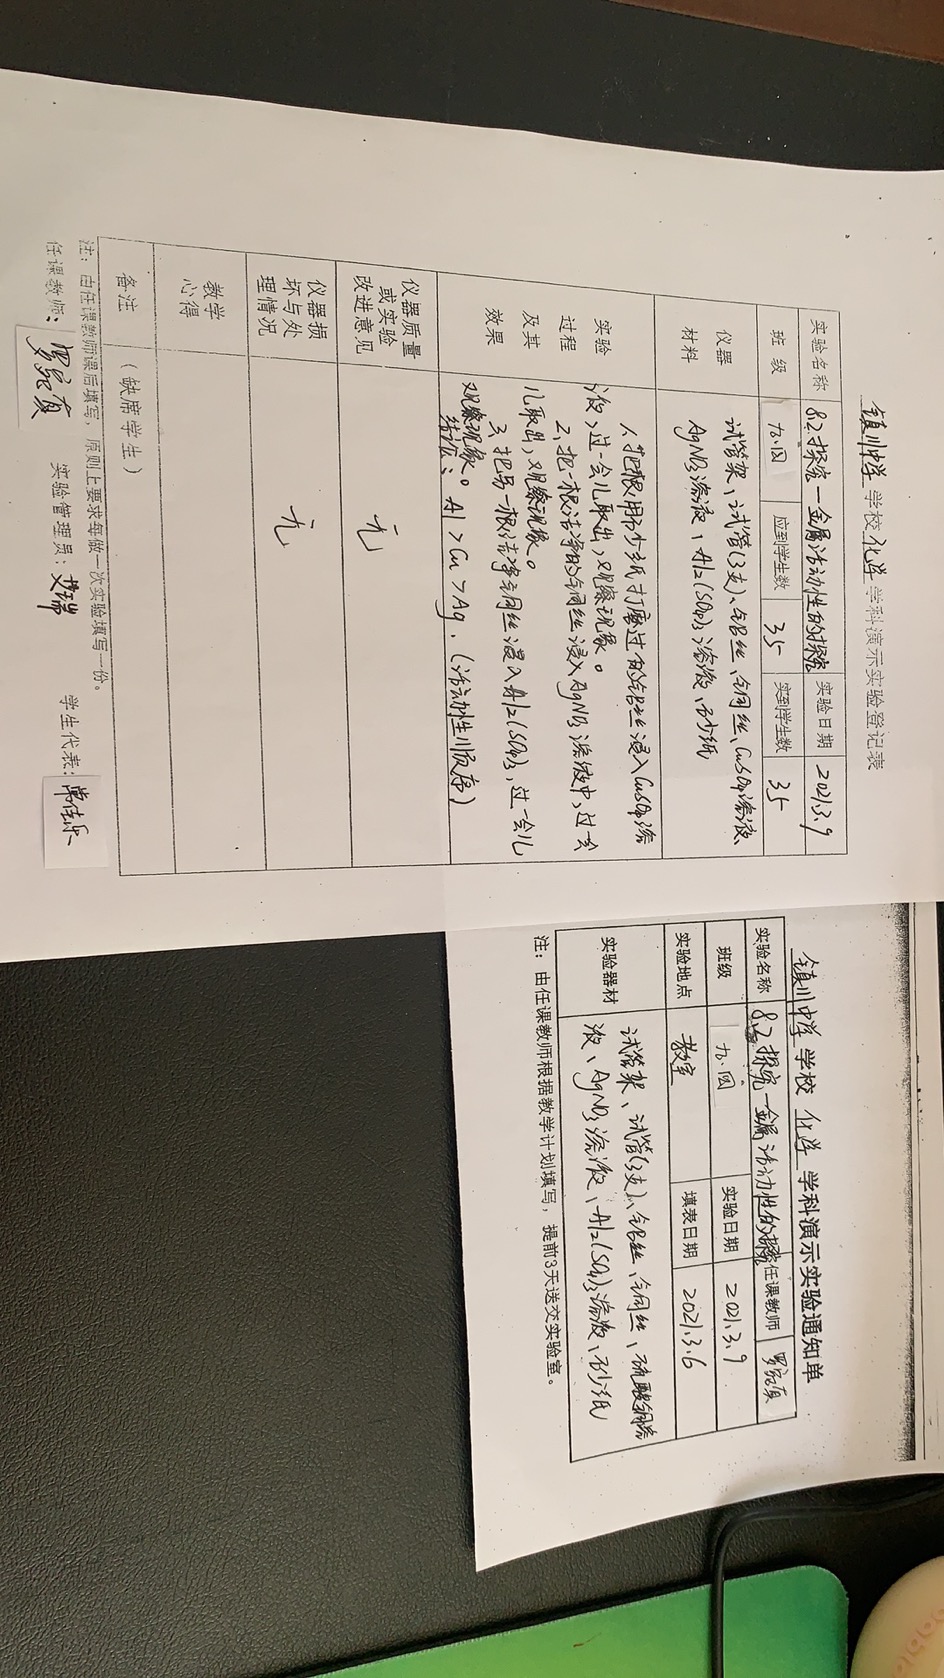 镇川中学 学校 化学 学科演示实验登记表
实验名称 8.2 探究一金属活动性的探究 实验日期 2021.3.9
班 级 九.四 应到学生数 35 实到学生数 35
仪器
材料
试管架、试管(3支)、铝丝、铜丝、CuSO4溶液、
AgNO3溶液、Al2(SO4)3溶液、砂纸
实验
过程
及其
效果
1、把一根用砂纸打磨过的铝丝浸入CuSO4溶
液,过一会儿取出,观察现象。
2、把一根洁净的铜丝浸入AgNO3溶液中,过一会
儿取出,观察现象。
3、把另一根洁净铜丝浸入Al2(SO4)3,过一会儿
观察现象。
结论:Al > Cu > Ag.(活动性顺序)
仪器质量
或实验
改进意见
无
仪器损
坏与处
理情况
无
教学
心得
备注
(缺席学生)
注:由任课教师课后填写,原则上要求每做一次实验填写一份。
任课教师: 实验管理员: 学生代表:
镇川中学 学校 化学 学科演示实验通知单
实验名称 8.2 探究一金属活动性的探究 任课教师
班级 九.四 实验日期 2021.3.9
实验地点 教室 填表日期 2021.3.6
实验器材
试管架、试管(3支)、铝丝、铜丝、硫酸铜溶
液、AgNO3溶液、Al2(SO4)3溶液、砂纸
注:由任课教师根据教学计划填写,提前3天送交实验室。